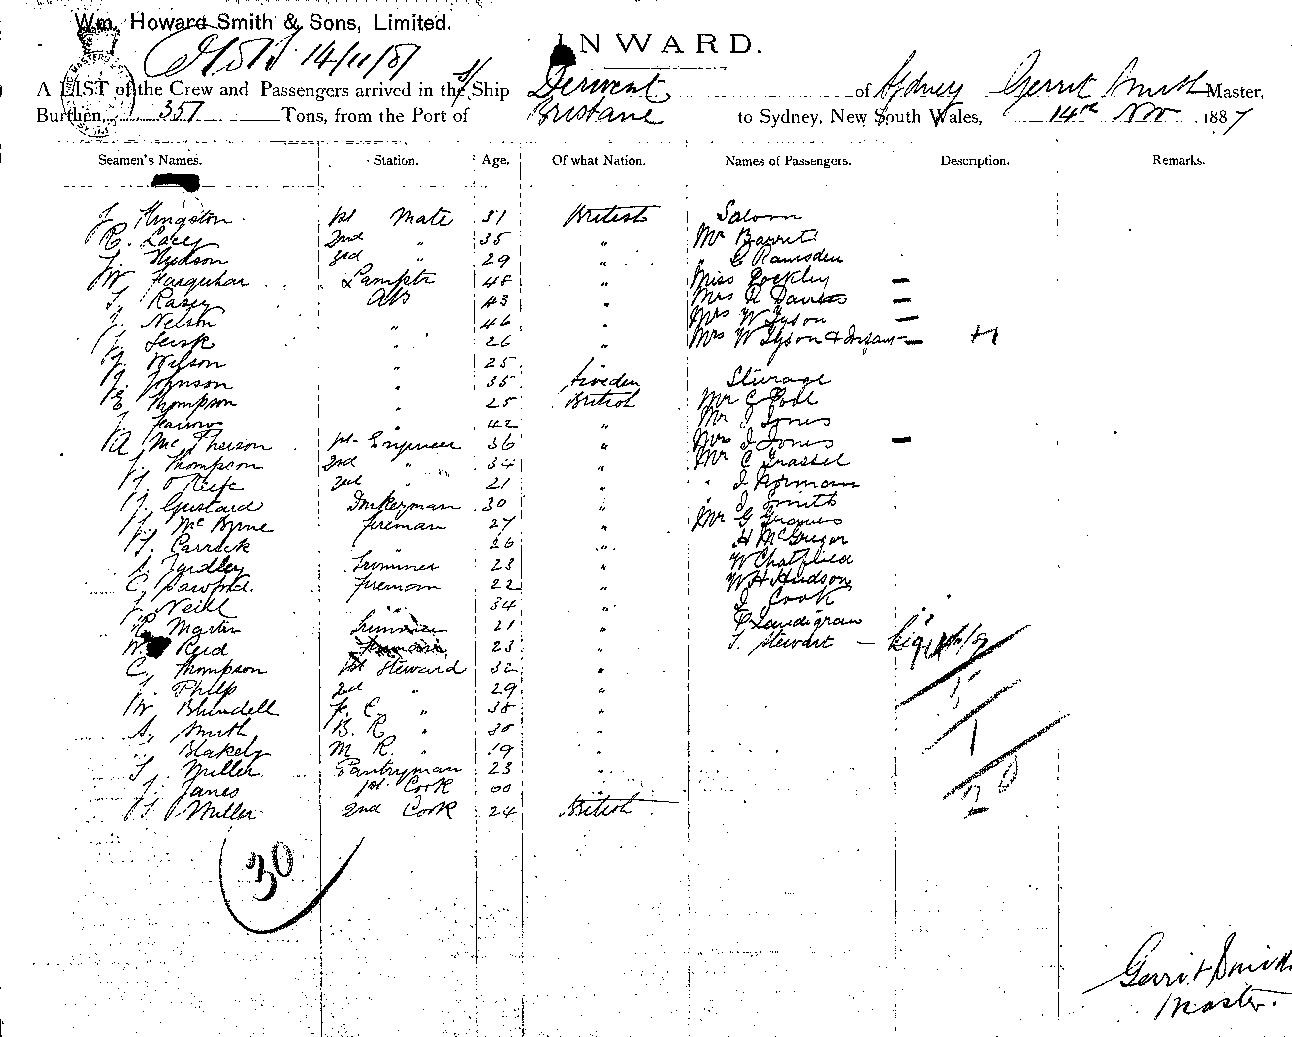 Wm. Howard Smith & Sons, Limited.
14/11/87
INWARD.
A LIST of the Crew and Passengers arrived in the S/Ship Derwent of Sydney Gerrit Smith Master,
Burthen, 357 Tons, from the Port of Brisbane to Sydney, New South Wales, 14th Nov 1887
Seamen's Names. Station. Age. Of what Nation. Names of Passengers. Description. Remarks.
J. Kingston 1st Mate 31 British Saloon
R. Lacey 2nd " 35 " Mr Barrett
J. Hudson 3rd " 29 " " G Ramsden
W. Farquhar Lamptr 48 " Miss Cockley –
T. Rasey AB 43 " Mrs A Davies –
J. Nelson " 46 " Mrs W Tyson –
J. " 26 " Mrs W Tyson & Infant – +1
J. Wilson " 25 "
J. Johnson " 35 Sweden Sturage
E. Thompson " 25 British Mr C Pool
J. " 42 " Mr J Jones
A McPherson 1st Engineer 36 " Mrs J Jones –
J. Thompson 2nd " 34 " Mr C Grassel
J. O'Keefe 3rd " 21 " " J Norman
J. Gustard Donkeyman 30 " " J Smith
J. McByrne fireman 27 " Mr G Graves
J. Carrick " 26 " H McGregor
A. Yardley Trimmer 23 " W Chatfield
C. Fireman 22 " W H Hudson
J. Neill " 34 " J Cook
R. Martin Trimmer 21 " P Landigran
W. Reid 23 " T. Stewart –
C. Thompson 1st Steward 32 "
J. Philp 2nd " 29 " 15
W. Blundell F. C. " 38 "
A. Smith B. R " 30 " 1
" Blakely M R. " 19 "
J. Miller Pantryman 23 "
J. Janes 1st Cook 00 " 12
J. Miller 2nd Cook 24 British
30
Gerrit Smith
Master.